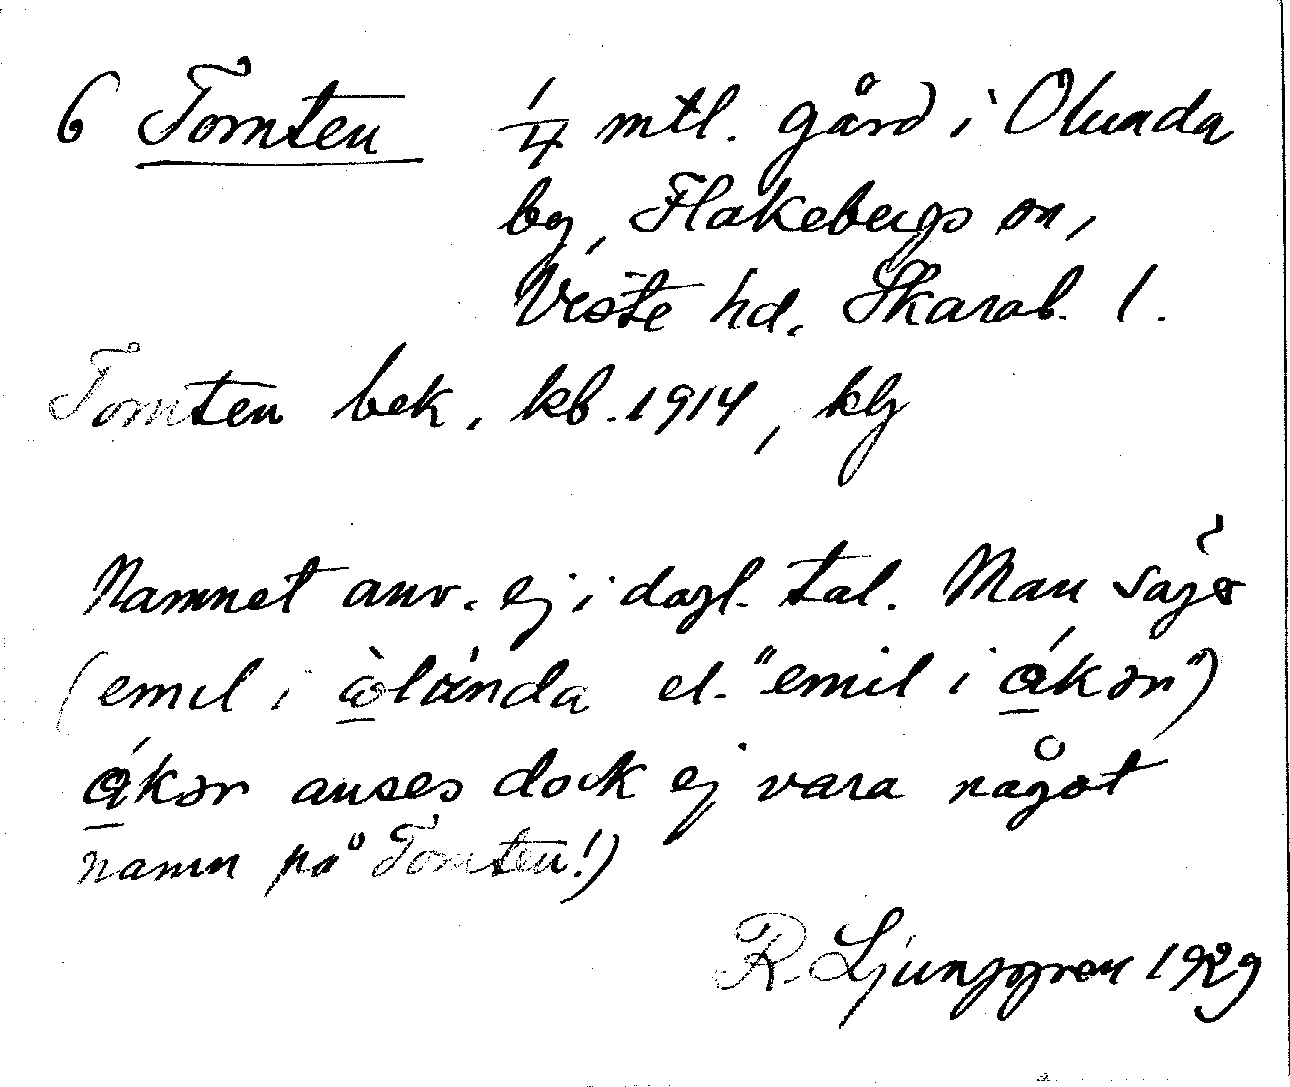 6 Tomten 1/4 mtl. gård i Olunda
by, Flakebergs sn,
Viste hd. Skarab. l.
Tomten bek. kb. 1914, klj
Namnet anv. ej i dagl. tal. Man säger
(emil i ò̲lánda el. "emil i á̲kər")
á̲kər anses dock ej vara något
namn på Tomten!)
R. Ljunggren 1929